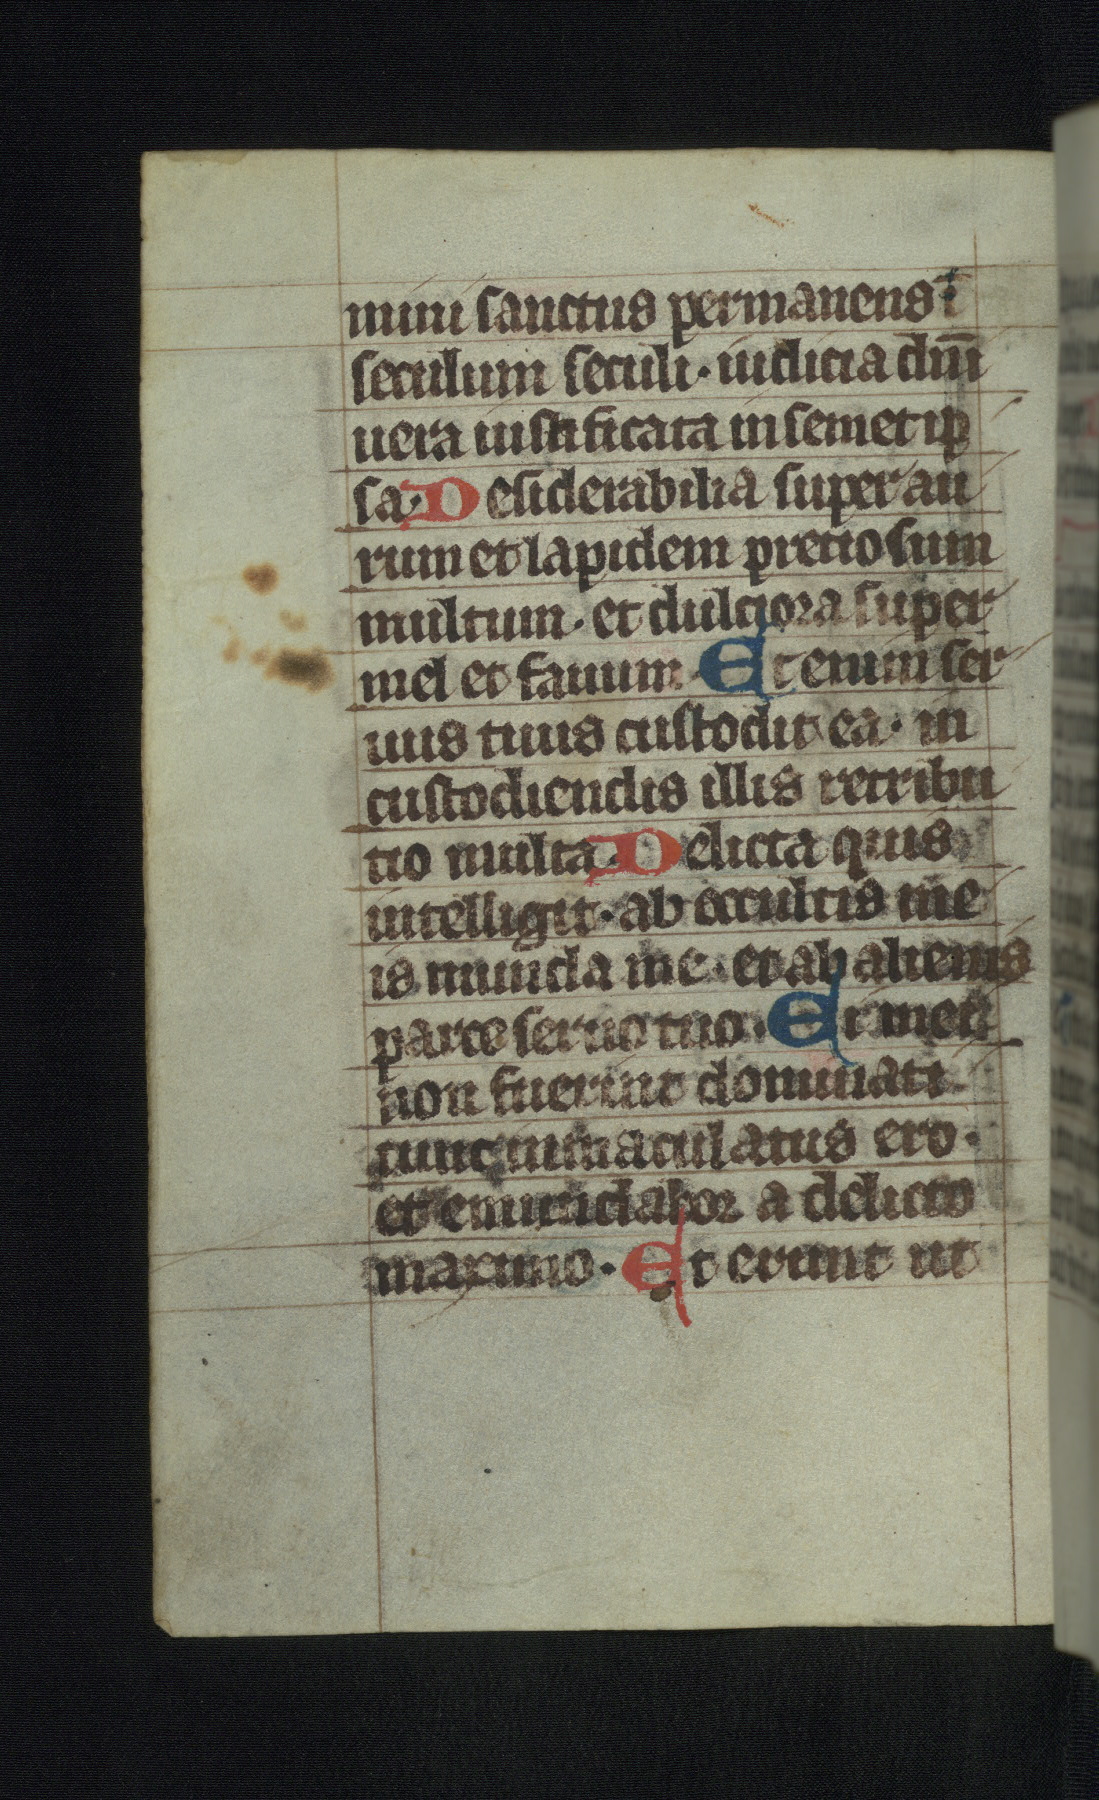 mini sanctus permanens ī
seculum seculi · iudicia dnī
uera iustificata in semet ip
sa · Desiderabilia super au
rum et lapidem pretiosum
multum · et dulciora super
mel et fauum · Etenim ser
uus tuus custodit ea · in
custodiendis illis retribu
tio multa · Delicta quis
intelligit · ab occultis me
is munda me · et ab alienis
parce seruo tuo · Si mei
non fuerint dominati
tunc inmaculatus ero ·
et emundabor a delicto
maximo · Et erunt ut